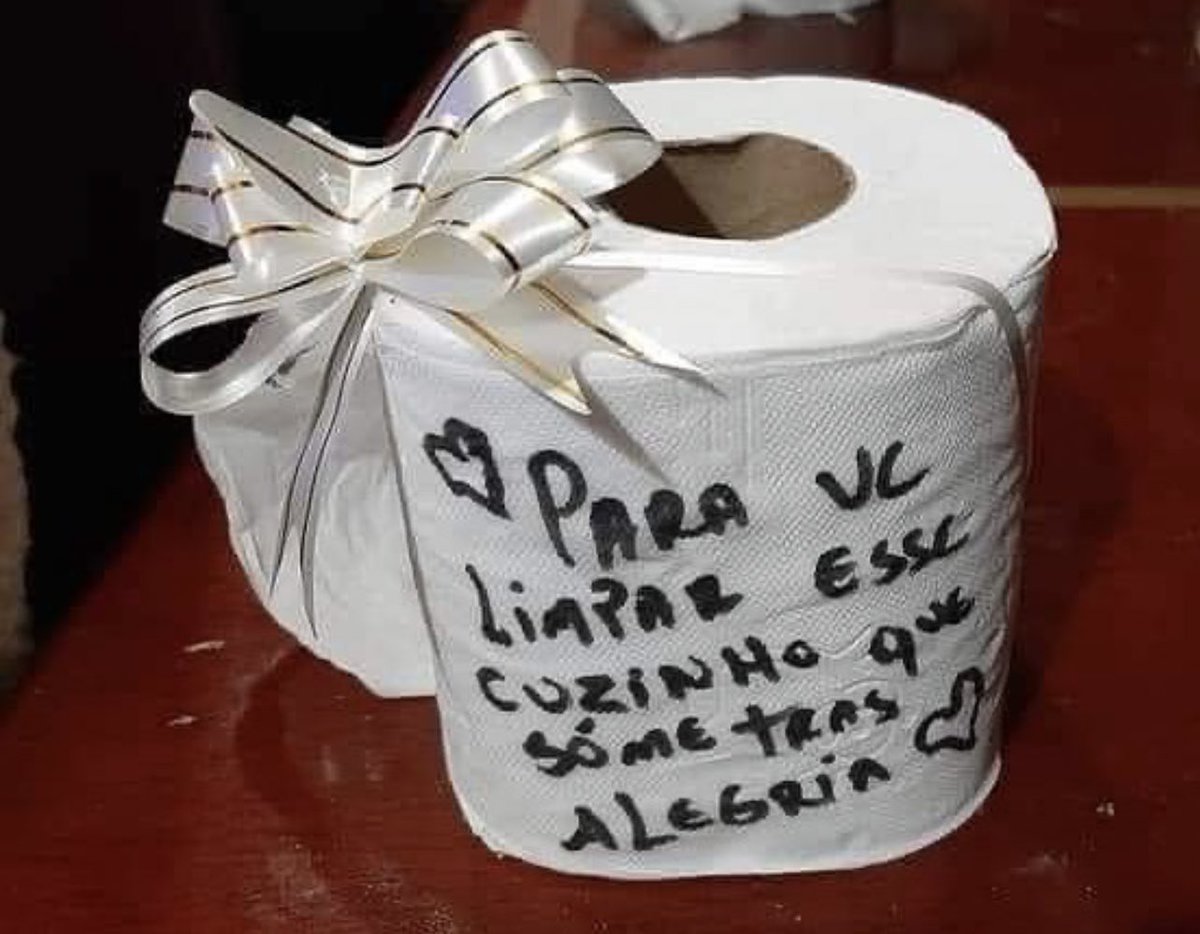 PARA VC
LIMPAR ESSE
CUZINHO QUE
SÓ ME TRAS
ALEGRIA